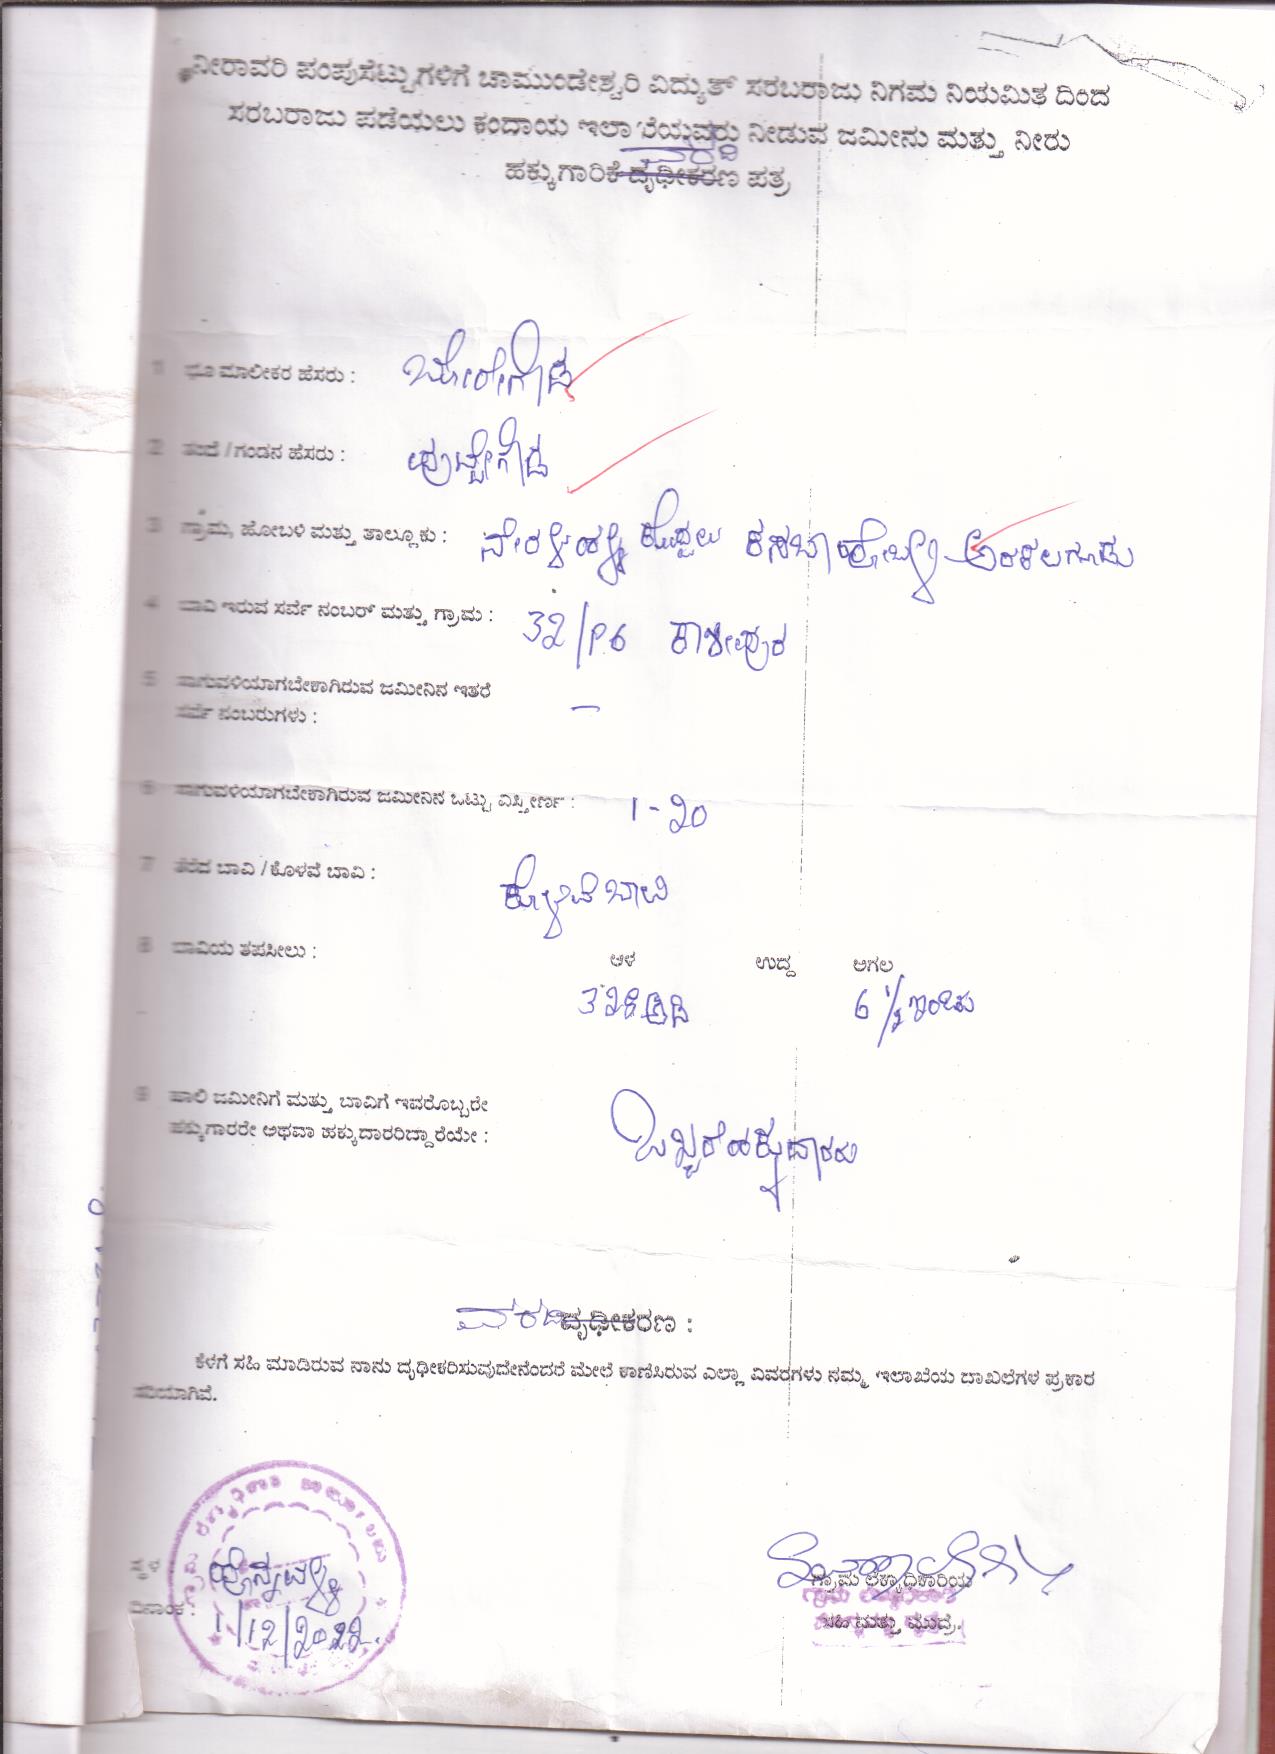 ನೀರಾವರಿ ಪಂಪುಸೆಟ್ಟುಗಳಿಗೆ ಚಾಮುಂಡೇಶ್ವರಿ ವಿದ್ಯುತ್ ಸರಬರಾಜು ನಿಗಮ ನಿಯಮಿತ ದಿಂದ
ಸರಬರಾಜು ಪಡೆಯಲು ಕಂದಾಯ ಇಲಾಖೆಯವರು ನೀಡುವ ಜಮೀನು ಮತ್ತು ನೀರು
ಹಕ್ಕುಗಾರಿಕೆ ದೃಢೀಕರಣ ಪತ್ರ
1 ಭೂ ಮಾಲೀಕರ ಹೆಸರು : ಬೋರೇಗೌಡ
2 ತಂದೆ / ಗಂಡನ ಹೆಸರು : ಪುಟ್ಟೇಗೌಡ
3 ಗ್ರಾಮ, ಹೋಬಳಿ ಮತ್ತು ತಾಲ್ಲೂಕು : ಕಸಬಾ ಹೋಬಳಿ ಅರಕಲಗೂಡು
4 ಬಾವಿ ಇರುವ ಸರ್ವೆ ನಂಬರ್ ಮತ್ತು ಗ್ರಾಮ : 32/P6 ಕಾಶೀಪುರ
5 ಸಾಗುವಳಿಯಾಗಬೇಕಾಗಿರುವ ಜಮೀನಿನ ಇತರೆ
ಸರ್ವೆ ನಂಬರುಗಳು : –
6 ಸಾಗುವಳಿಯಾಗಬೇಕಾಗಿರುವ ಜಮೀನಿನ ಒಟ್ಟು ವಿಸ್ತೀರ್ಣ : 1-20
7 ತೆರೆದ ಬಾವಿ / ಕೊಳವೆ ಬಾವಿ : ಕೊಳವೆ ಬಾವಿ
8 ಬಾವಿಯ ತಪಸೀಲು : ಆಳ ಉದ್ದ ಅಗಲ
ಅಡಿ 6 1/2 ಇಂಚು
9 ಹಾಲಿ ಜಮೀನಿಗೆ ಮತ್ತು ಬಾವಿಗೆ ಇವರೊಬ್ಬರೇ
ಹಕ್ಕುಗಾರರೇ ಅಥವಾ ಹಕ್ಕುದಾರರಿದ್ದಾರೆಯೇ : ಒಬ್ಬರೆ ಹಕ್ಕುದಾರರು
ವರದಿ ದೃಢೀಕರಣ :
ಕೆಳಗೆ ಸಹಿ ಮಾಡಿರುವ ನಾನು ದೃಢೀಕರಿಸುವುದೇನೆಂದರೆ ಮೇಲೆ ಕಾಣಿಸಿರುವ ಎಲ್ಲಾ ವಿವರಗಳು ನಮ್ಮ ಇಲಾಖೆಯ ದಾಖಲೆಗಳ ಪ್ರಕಾರ
ಸರಿಯಾಗಿವೆ.
ಸ್ಥಳ : ಹೊನ್ನವಳ್ಳಿ
ದಿನಾಂಕ : 1/12/2022.
ಗ್ರಾಮ ಲೆಕ್ಕಾಧಿಕಾರಿಯ
ಸಹಿ ಮತ್ತು ಮುದ್ರೆ.